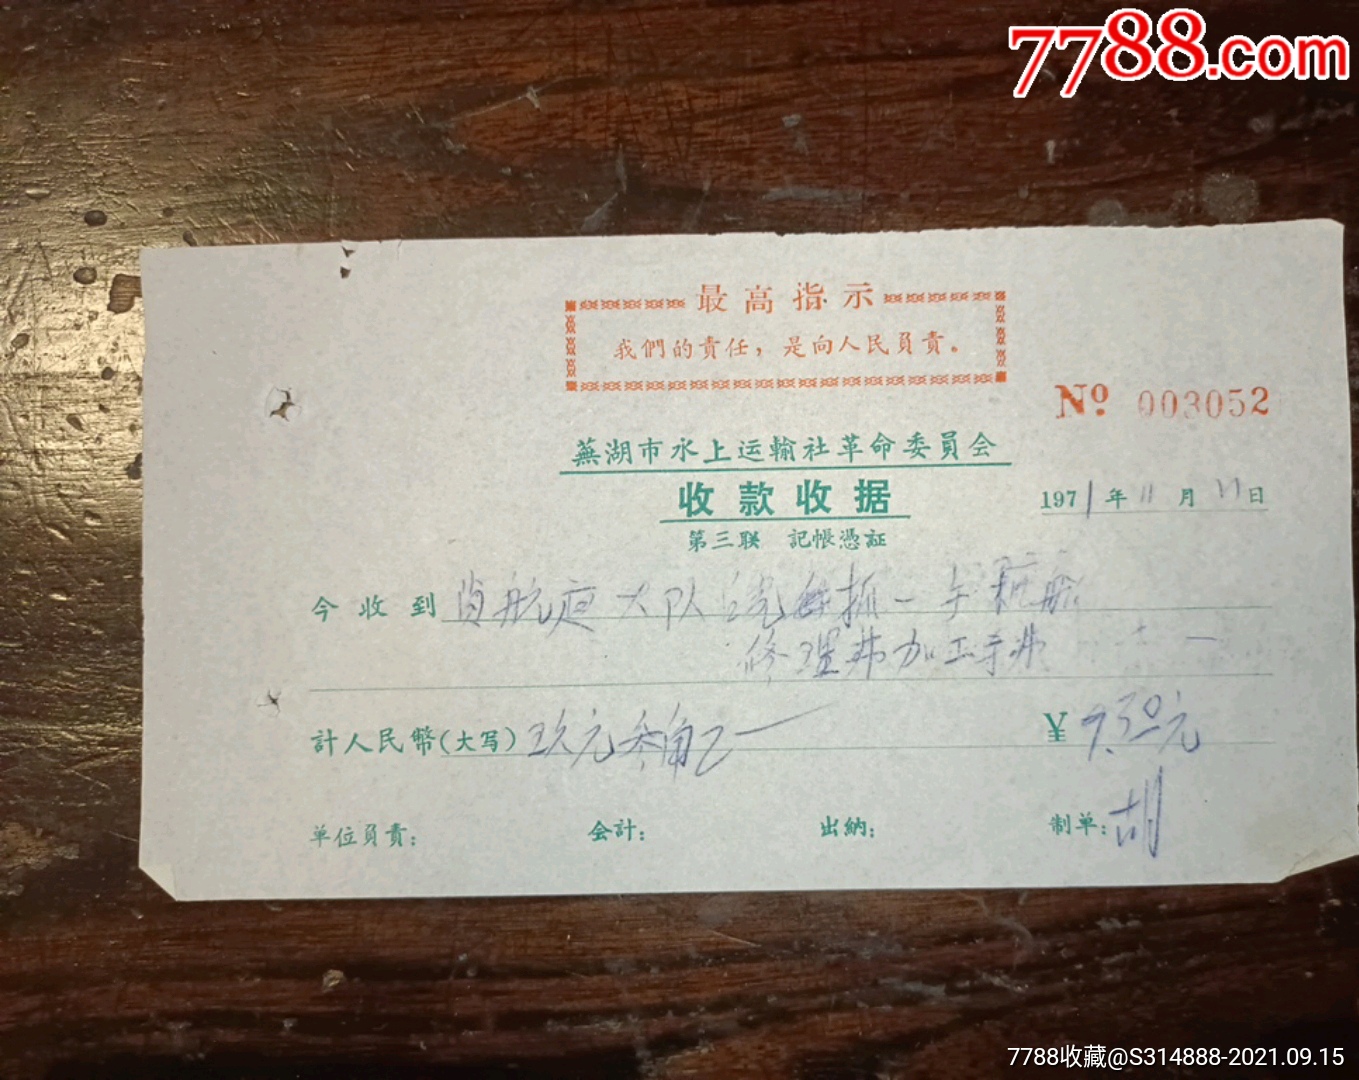 7788.com
最高指示
我們的責任，是向人民負責。
Nº 003052
蕪湖市水上运輸社革命委員会
收款收据
1971年11月 日
第三联 記帳憑証
今收到 航 大队
修理 加工
計人民幣(大写) 玖元叁角
¥ 9.30元
单位負責：
会計：
出納：
制单：胡
7788收藏@S314888-2021.09.15